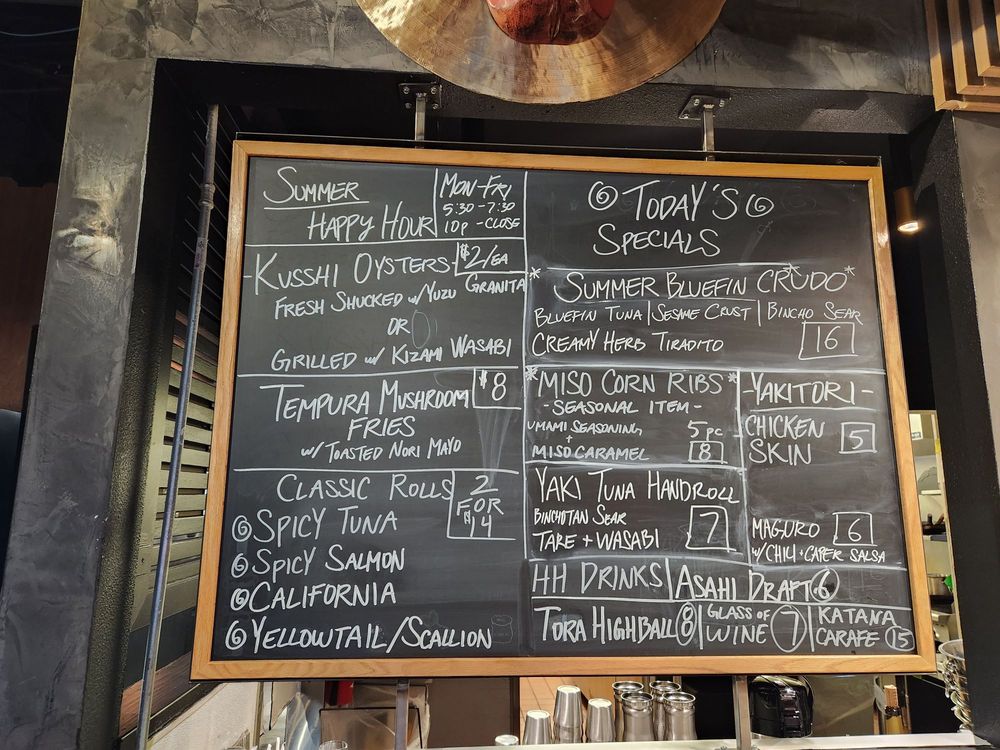 SUMMER
HAPPY HOUR
MON-FRI
5:30-7:30
10P-CLOSE
KUSSHI OYSTERS $2/EA
FRESH SHUCKED w/ YUZU GRANITA
OR
GRILLED w/ KIZAMI WASABI
TEMPURA MUSHROOM $8
FRIES
w/ TOASTED NORI MAYO
CLASSIC ROLLS
2
FOR
$14
SPICY TUNA
SPICY SALMON
CALIFORNIA
YELLOWTAIL/SCALLION
TODAY'S
SPECIALS
*SUMMER BLUEFIN CRUDO*
BLUEFIN TUNA | SESAME CRUST | BINCHO SEAR
CREAMY HERB TIRADITO 16
*MISO CORN RIBS*
-SEASONAL ITEM-
UMAMI SEASONING 5 PC
+
MISO CARAMEL 8
YAKI TUNA HANDROLL
BINCHOTAN SEAR
TARE + WASABI 7
-YAKITORI-
CHICKEN
SKIN 5
MAGURO 6
w/ CHILI + CAPER SALSA
HH DRINKS | ASAHI DRAFT 6
TORA HIGHBALL 8
GLASS OF
WINE 7
KATANA
CARAFE 15